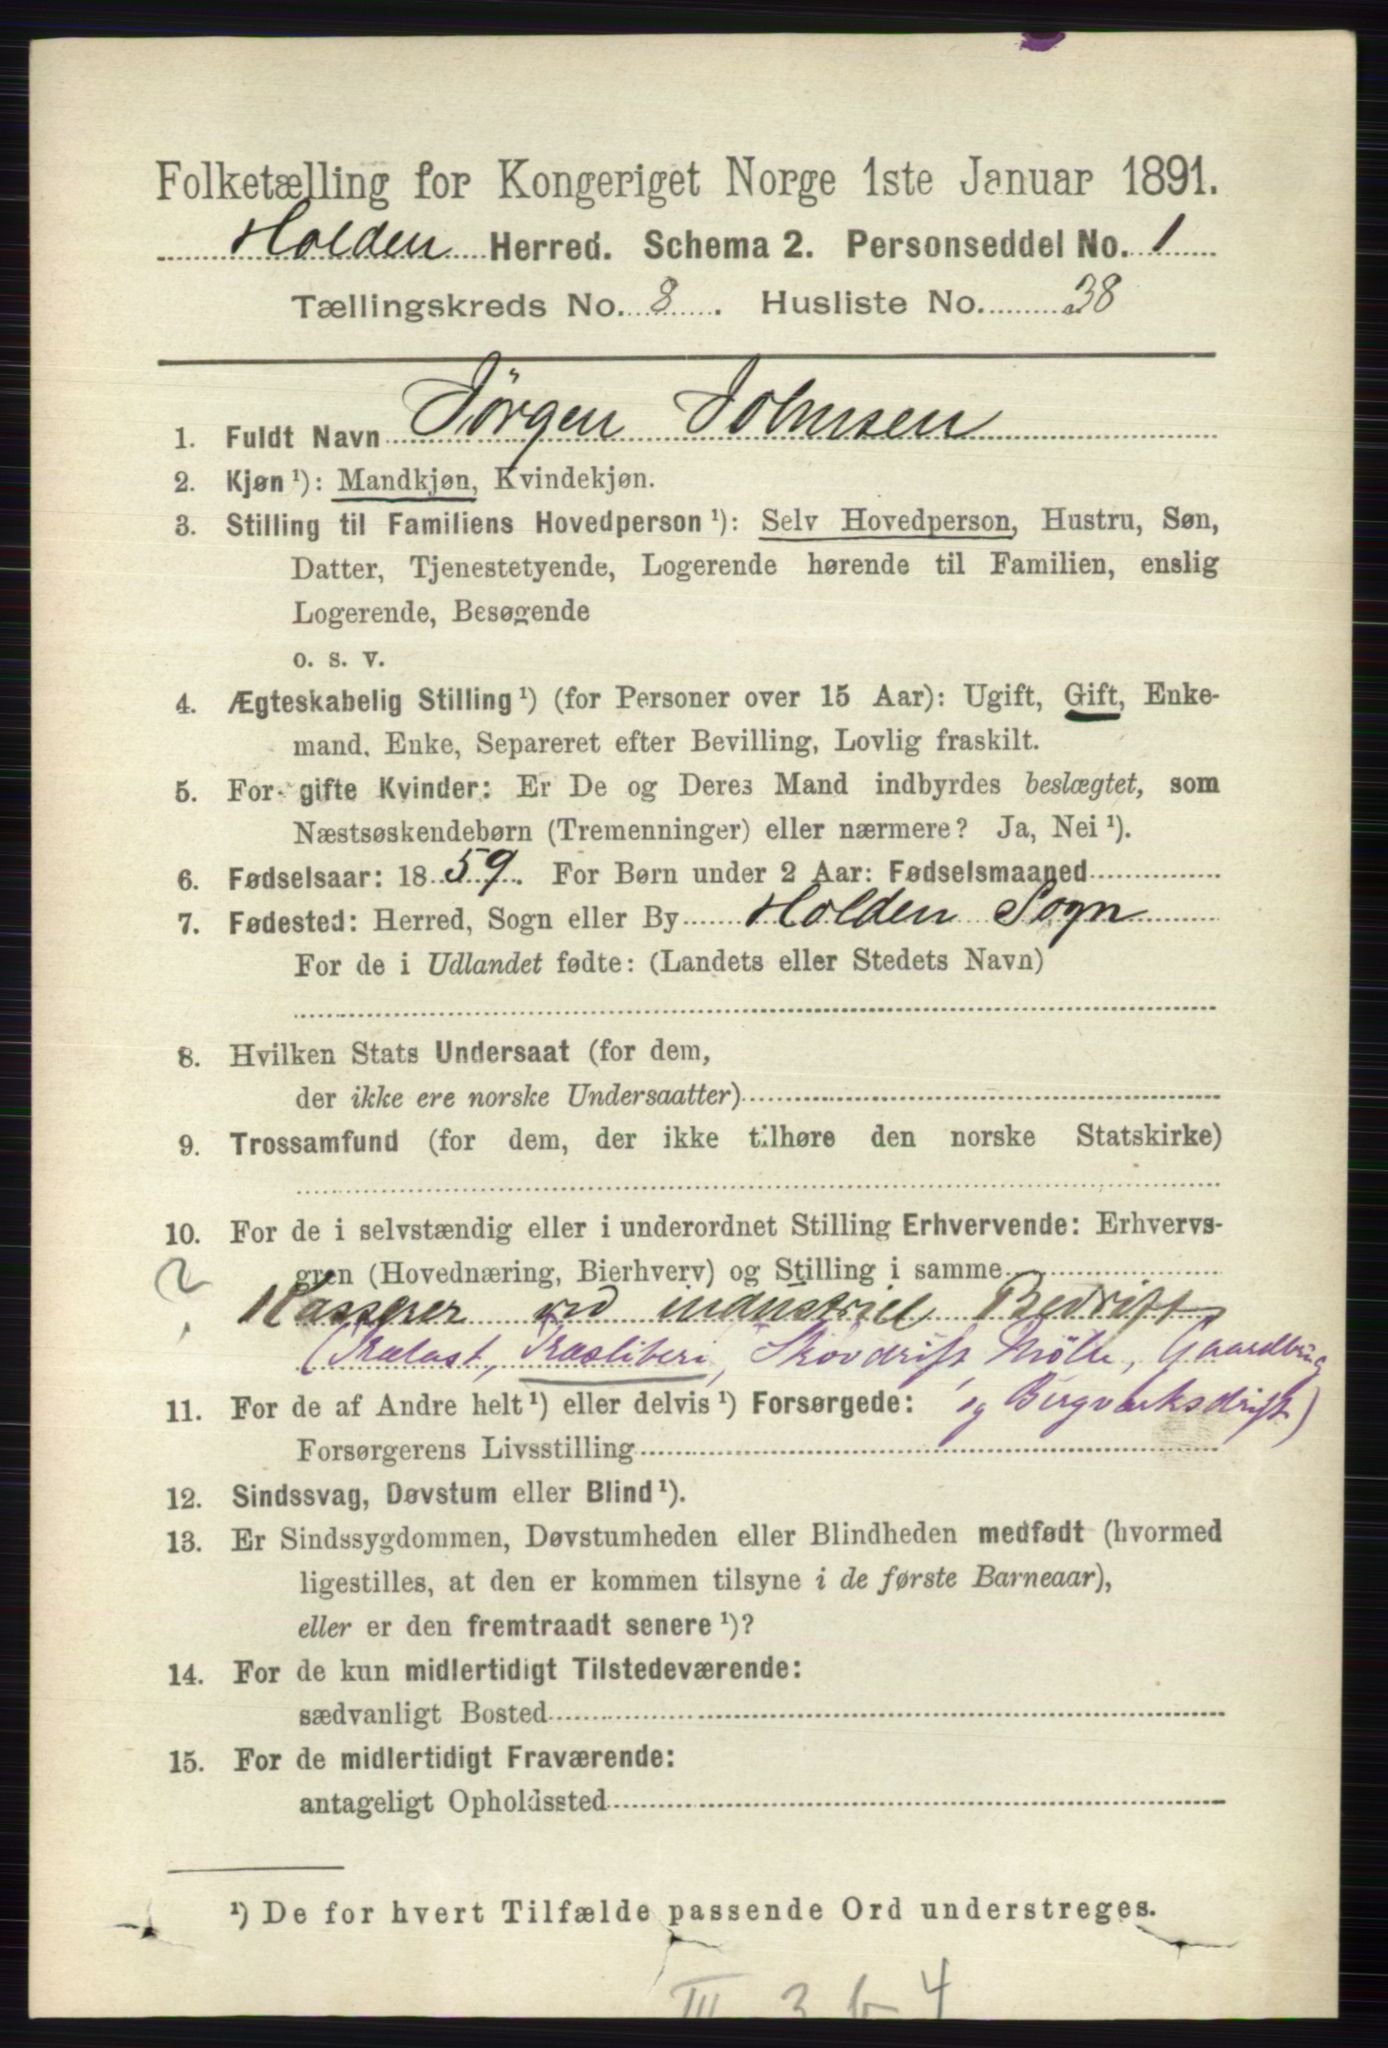 Folketælling for Kongeriget Norge 1ste Januar 1891.
Holden Herred. Schema 2. Personseddel No. 1
Tællingskreds No. 8. Husliste No. 38
1. Fuldt Navn Jörgen Johnsen
2. Kjøn ¹): Mandkjøn, Kvindekjøn.
3. Stilling til Familiens Hovedperson ¹): Selv Hovedperson, Hustru, Søn,
Datter, Tjenestetyende, Logerende hørende til Familien, enslig
Logerende, Besøgende
o. s. v.
4. Ægteskabelig Stilling ¹) (for Personer over 15 Aar): Ugift, Gift, Enke-
mand, Enke, Separeret efter Bevilling, Lovlig fraskilt.
5. For gifte Kvinder: Er De og Deres Mand indbyrdes beslægtet, som
Næstsøskendebørn (Tremenninger) eller nærmere? Ja, Nei ¹).
6. Fødselsaar: 1859. For Børn under 2 Aar: Fødselsmaaned
7. Fødested: Herred, Sogn eller By Holden Sogn
For de i Udlandet fødte: (Landets eller Stedets Navn)
8. Hvilken Stats Undersaat (for dem,
der ikke ere norske Undersaatter)
9. Trossamfund (for dem, der ikke tilhøre den norske Statskirke)
10. For de i selvstændig eller i underordnet Stilling Erhvervende: Erhvervs-
2 gren (Hovednæring, Bierhverv) og Stilling i samme
Kasserer ved industriel Bedrift
(Trælast, Træsliberi, Skovdrift Mölle, Gaardbrug
11. For de af Andre helt ¹) eller delvis ¹) Forsørgede: og Bergværksdrift)
Forsørgerens Livsstilling
12. Sindssvag, Døvstum eller Blind ¹).
13. Er Sindssygdommen, Døvstumheden eller Blindheden medfødt (hvormed
ligestilles, at den er kommen tilsyne i de første Barneaar),
eller er den fremtraadt senere ¹)?
14. For de kun midlertidigt Tilstedeværende:
sædvanligt Bosted
15. For de midlertidigt Fraværende:
antageligt Opholdssted
¹) De for hvert Tilfælde passende Ord understreges.
III 3 b 4